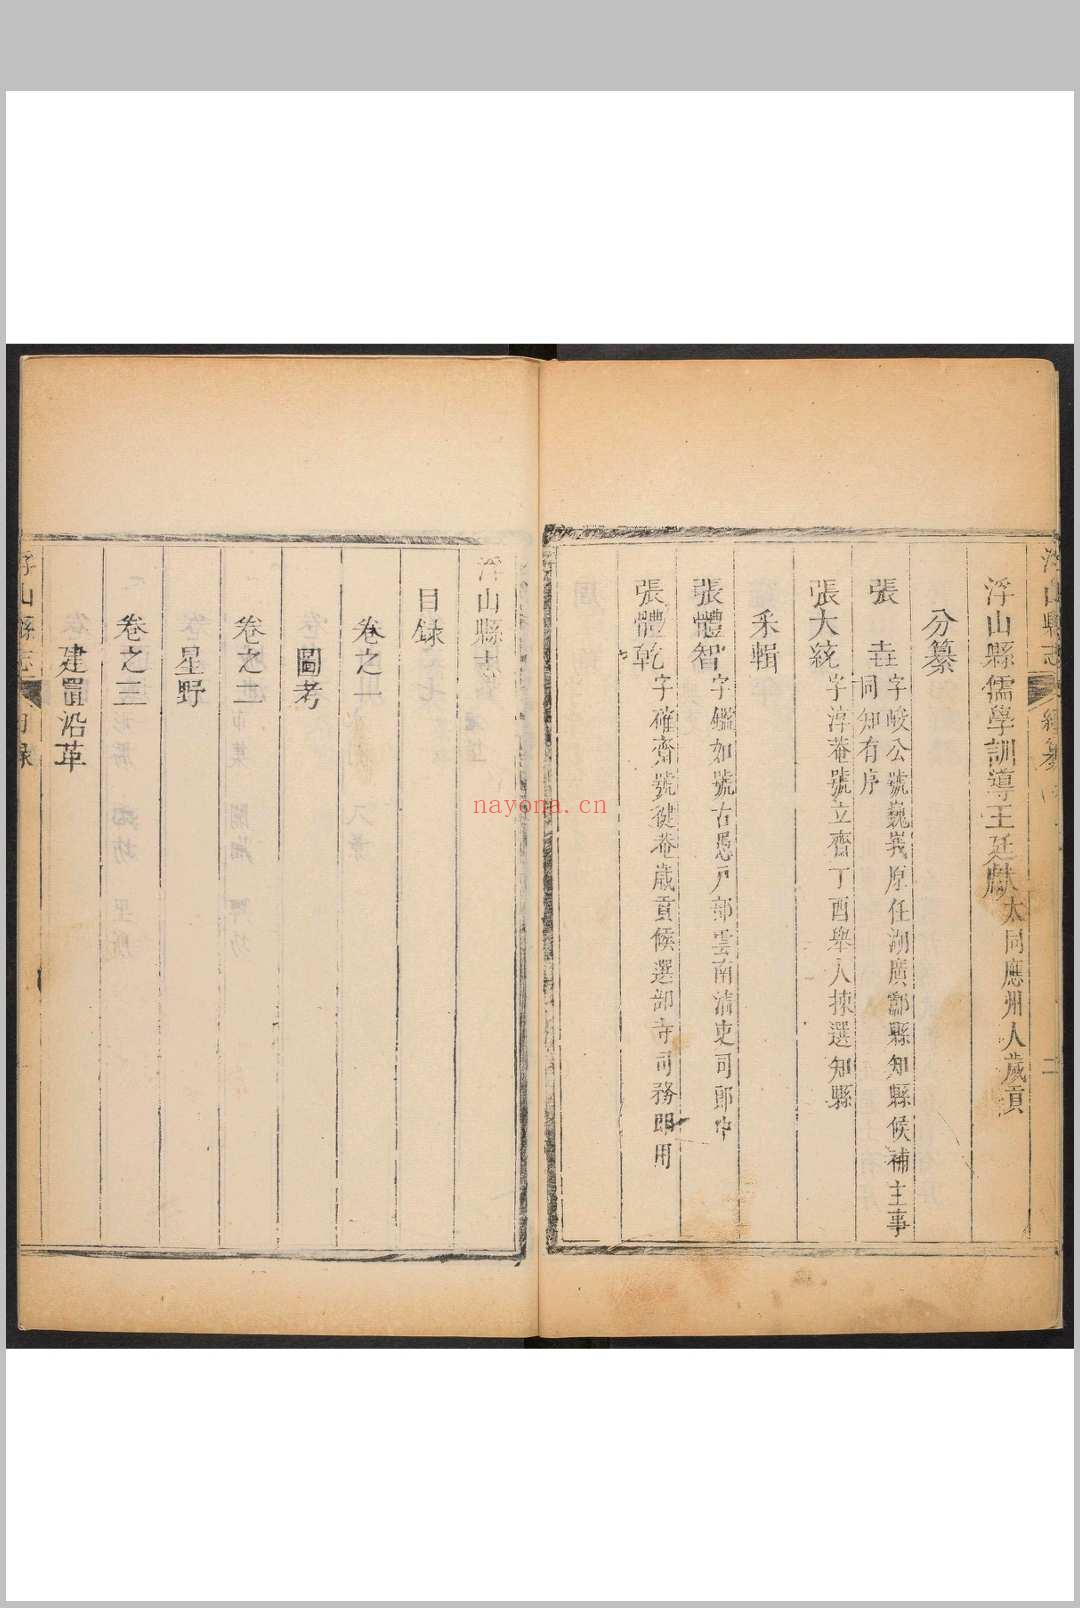 浮山縣儒學訓導王廷獻大同應州人歲貢
分纂
張 垚字峻公號巍峩原任湖廣酃縣知縣候補主事
同知有序
張大統字淳菴號立齋丁酉舉人揀選知縣
采輯
張體智字鑑如號古愚戶部雲南清吏司郎中
張體乾字確齋號健菴歲貢候選部寺司務即用
浮山縣志
目録
卷之一
圖考
卷之二
星野
卷之三
建置沿革
浮山縣志
目録
nayona.cn